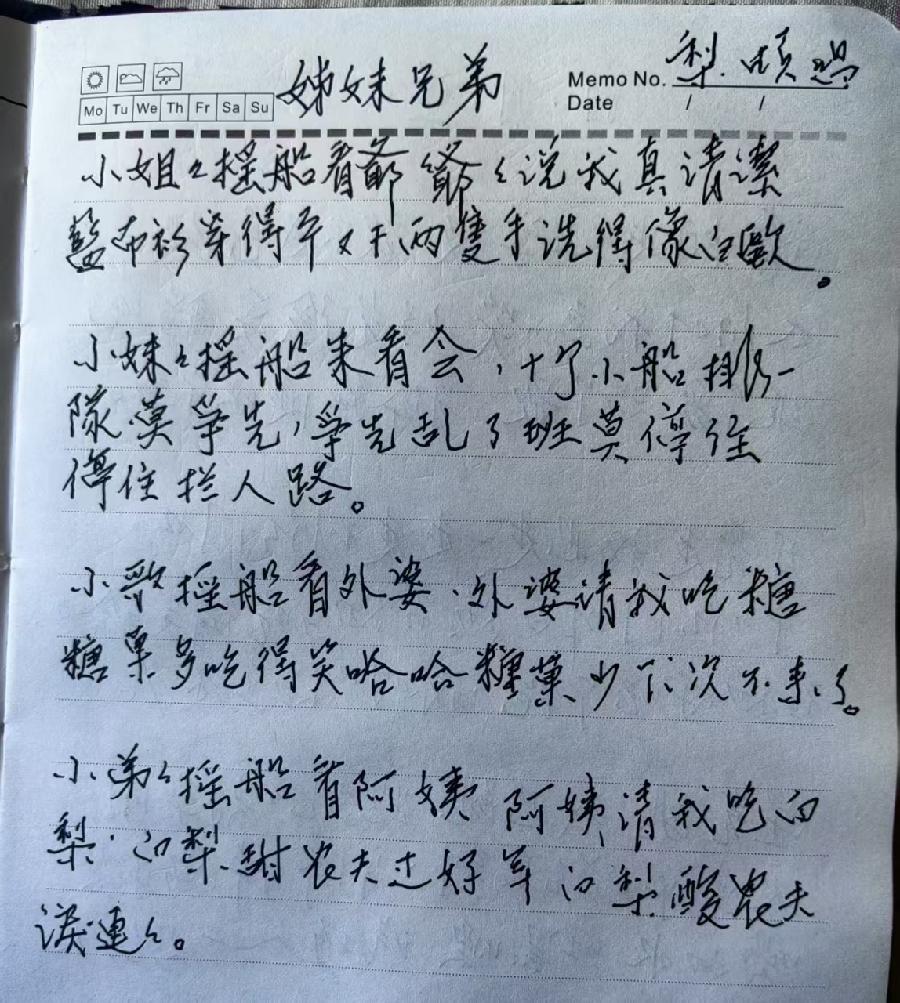 姊妹兄弟
Memo No. 梨.
Date / /
Mo Tu We Th Fr Sa Su
小姐々摇船看爺爺々说我真清潔
藍布衫穿得平又干两隻手洗得像白歐。
小妹々摇船来看会,十了小船排一
隊莫爭先,爭先乱了班莫停住
停住拦人路。
小歌摇船看外婆、外婆请我吃糖
糖菓多吃得笑哈哈糖菓少下次不来了。
小弟々摇船看阿姨 阿姨请我吃白
梨、白梨甜农夫过好年白梨酸农夫
淚連々。